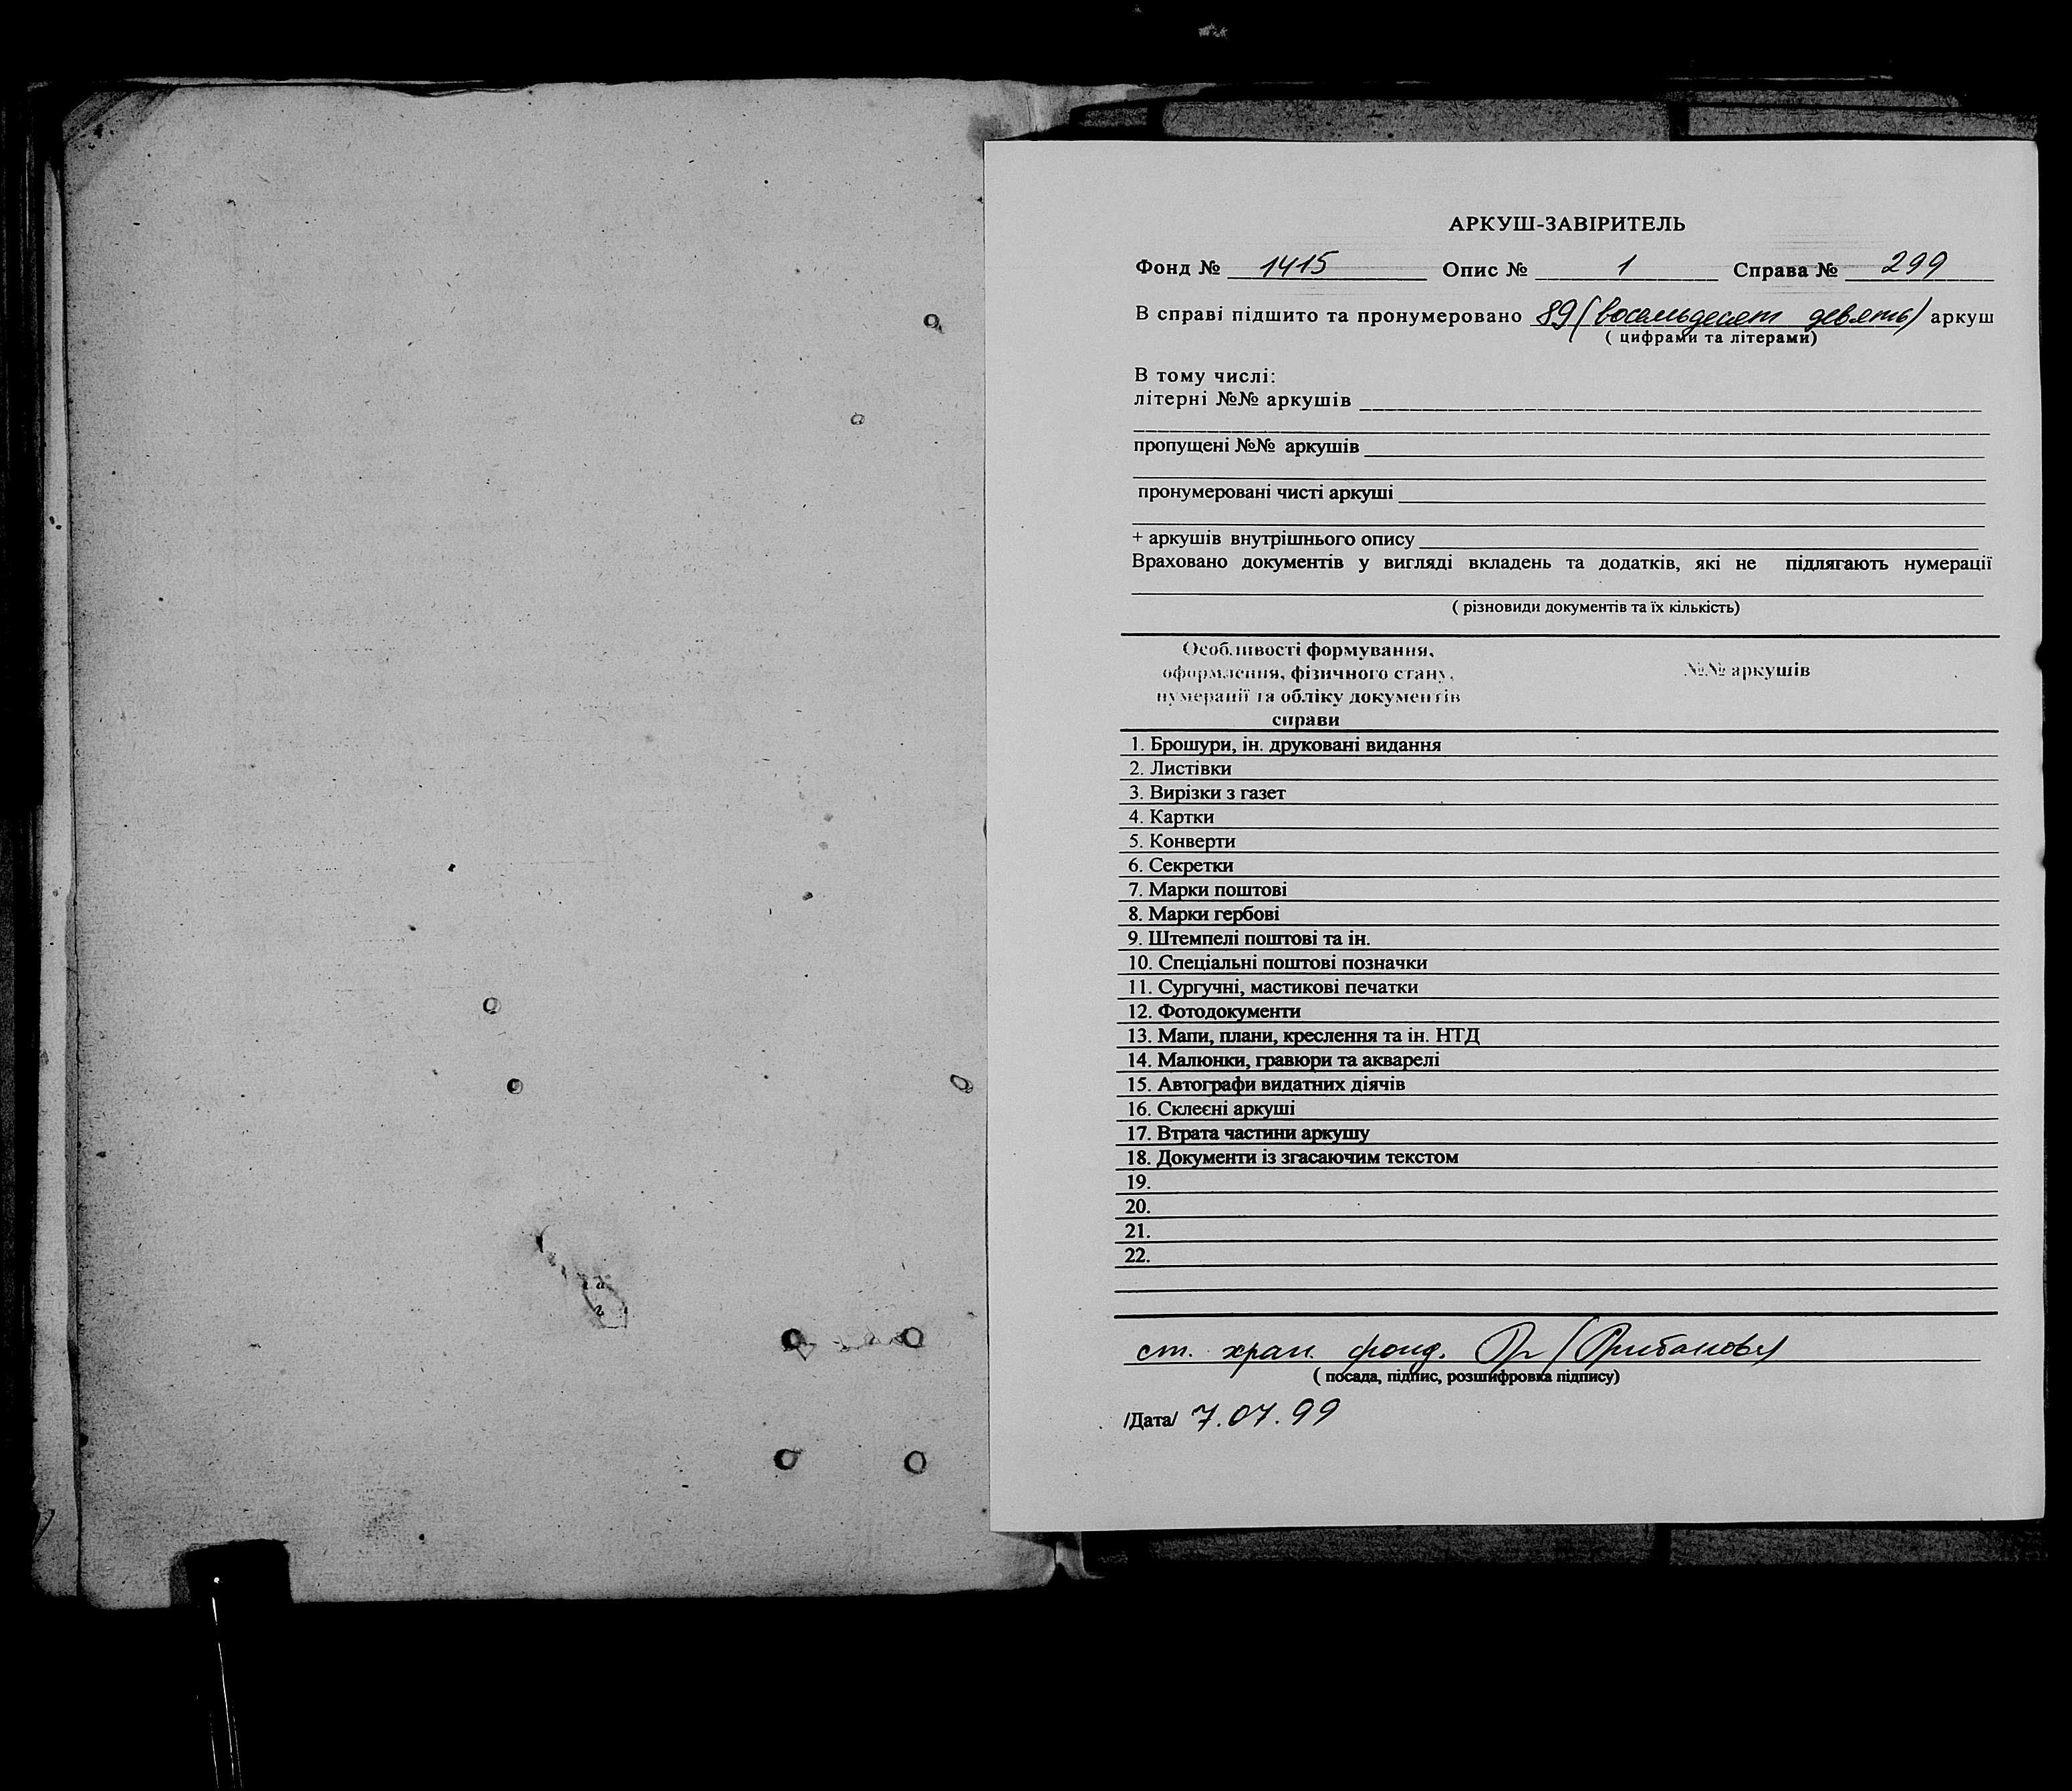 АРКУШ-ЗАВІРИТЕЛЬ
Фонд № 1415 Опис № 1 Справа № 299
В справі підшито та пронумеровано 89 (восемьдесят девять) аркуш
( цифрами та літерами)
В тому числі:
літерні №№ аркушів
пропущені №№ аркушів
пронумеровані чисті аркуші
+ аркушів внутрішнього опису
Враховано документів у вигляді вкладень та додатків, які не підлягають нумерації
( різновиди документів та їх кількість)
Особливості формування, оформлення, фізичного стану, нумерації та обліку документів справи
№№ аркушів
1. Брошури, ін. друковані видання
2. Листівки
3. Вирізки з газет
4. Картки
5. Конверти
6. Секретки
7. Марки поштові
8. Марки гербові
9. Штемпелі поштові та ін.
10. Спеціальні поштові позначки
11. Сургучні, мастикові печатки
12. Фотодокументи
13. Мапи, плани, креслення та ін. НТД
14. Малюнки, гравюри та акварелі
15. Автографи видатних діячів
16. Склеєні аркуші
17. Втрата частини аркушу
18. Документи із згасаючим текстом
19.
20.
21.
22.
ст. хран. фонд.
( посада, підпис, розшифровка підпису)
/Дата/ 7.07.99